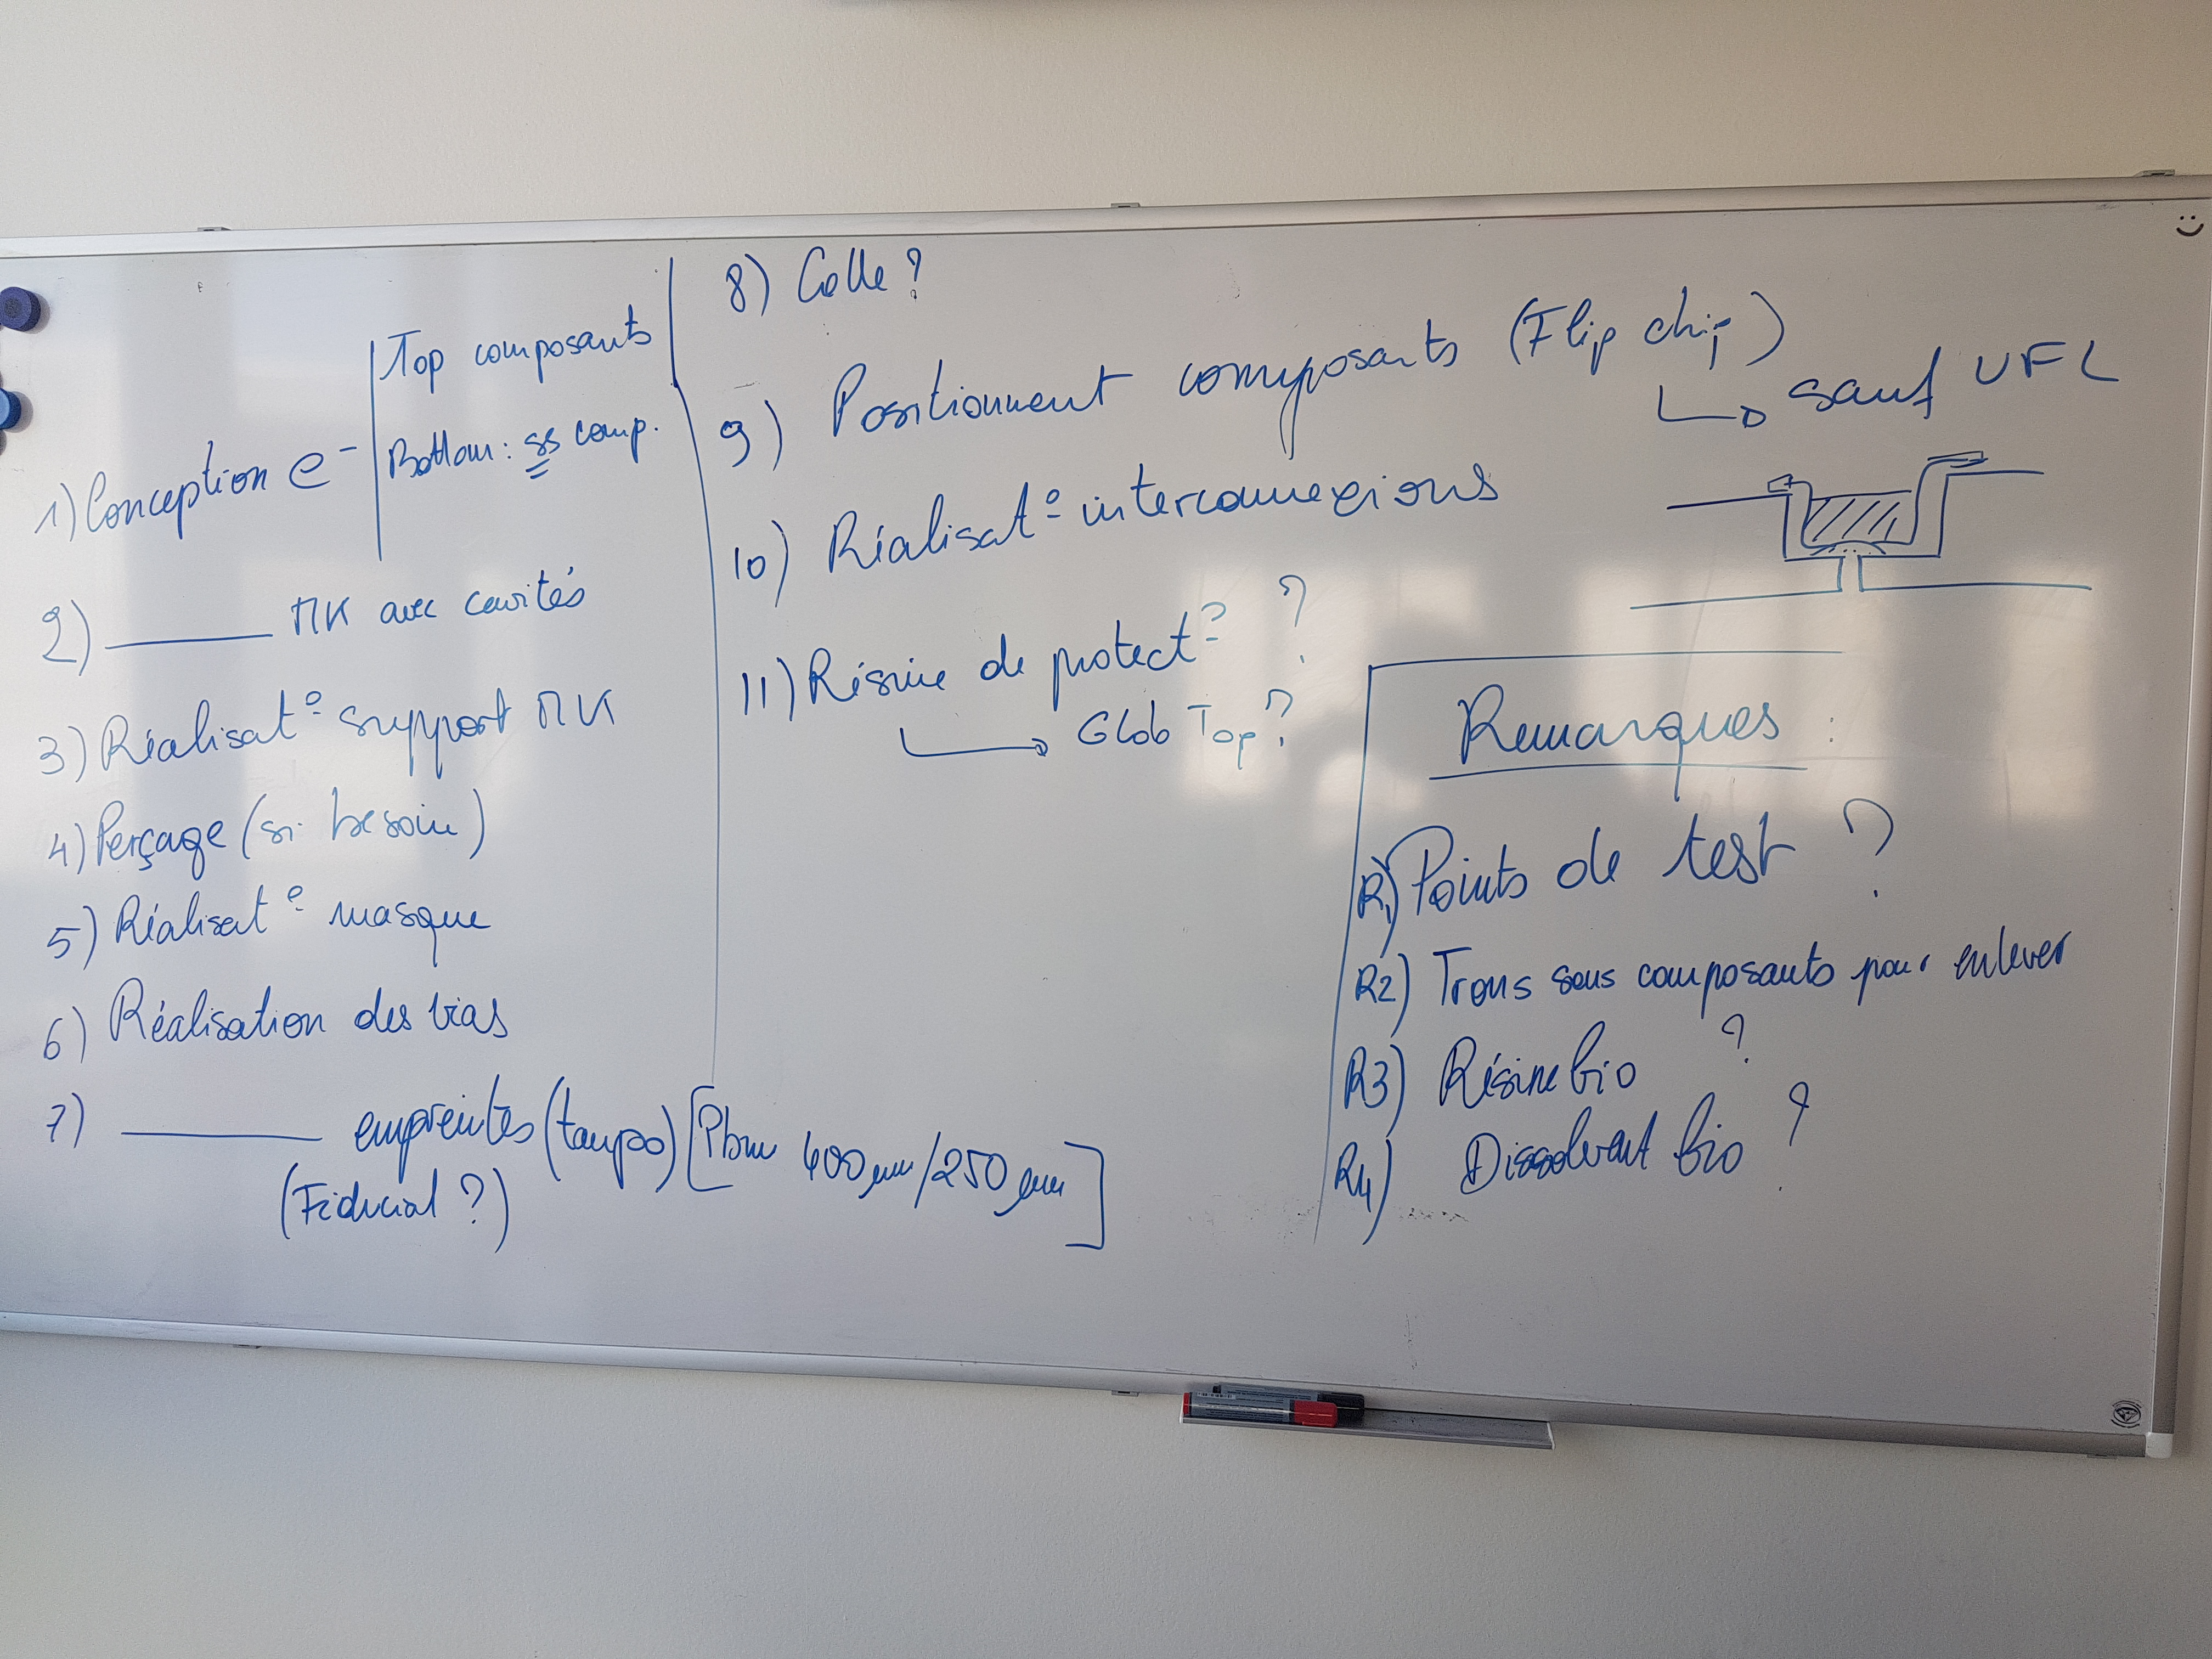 1) Conception e⁻
Top composants
Bottom : ss comp.
2) ——— MK avec cavités
3) Réalisat° support MK
4) Perçage (si besoin)
5) Réalisat° masque
6) Réalisation des vias
7) ——— empreintes (tampo) [Pbm 400 µm/250 µm]
(Fiducial ?)
8) Colle ?
9) Positionnement composants (Flip chip)
↳ sauf UFL
10) Réalisat° interconnexions
11) Résine de protect° ?
↳ Glob Top ?
Remarques :
R1) Points de test ?
R2) Trous sous composants pour enlever
R3) Résine bio ?
R4) Dissolvant bio ?